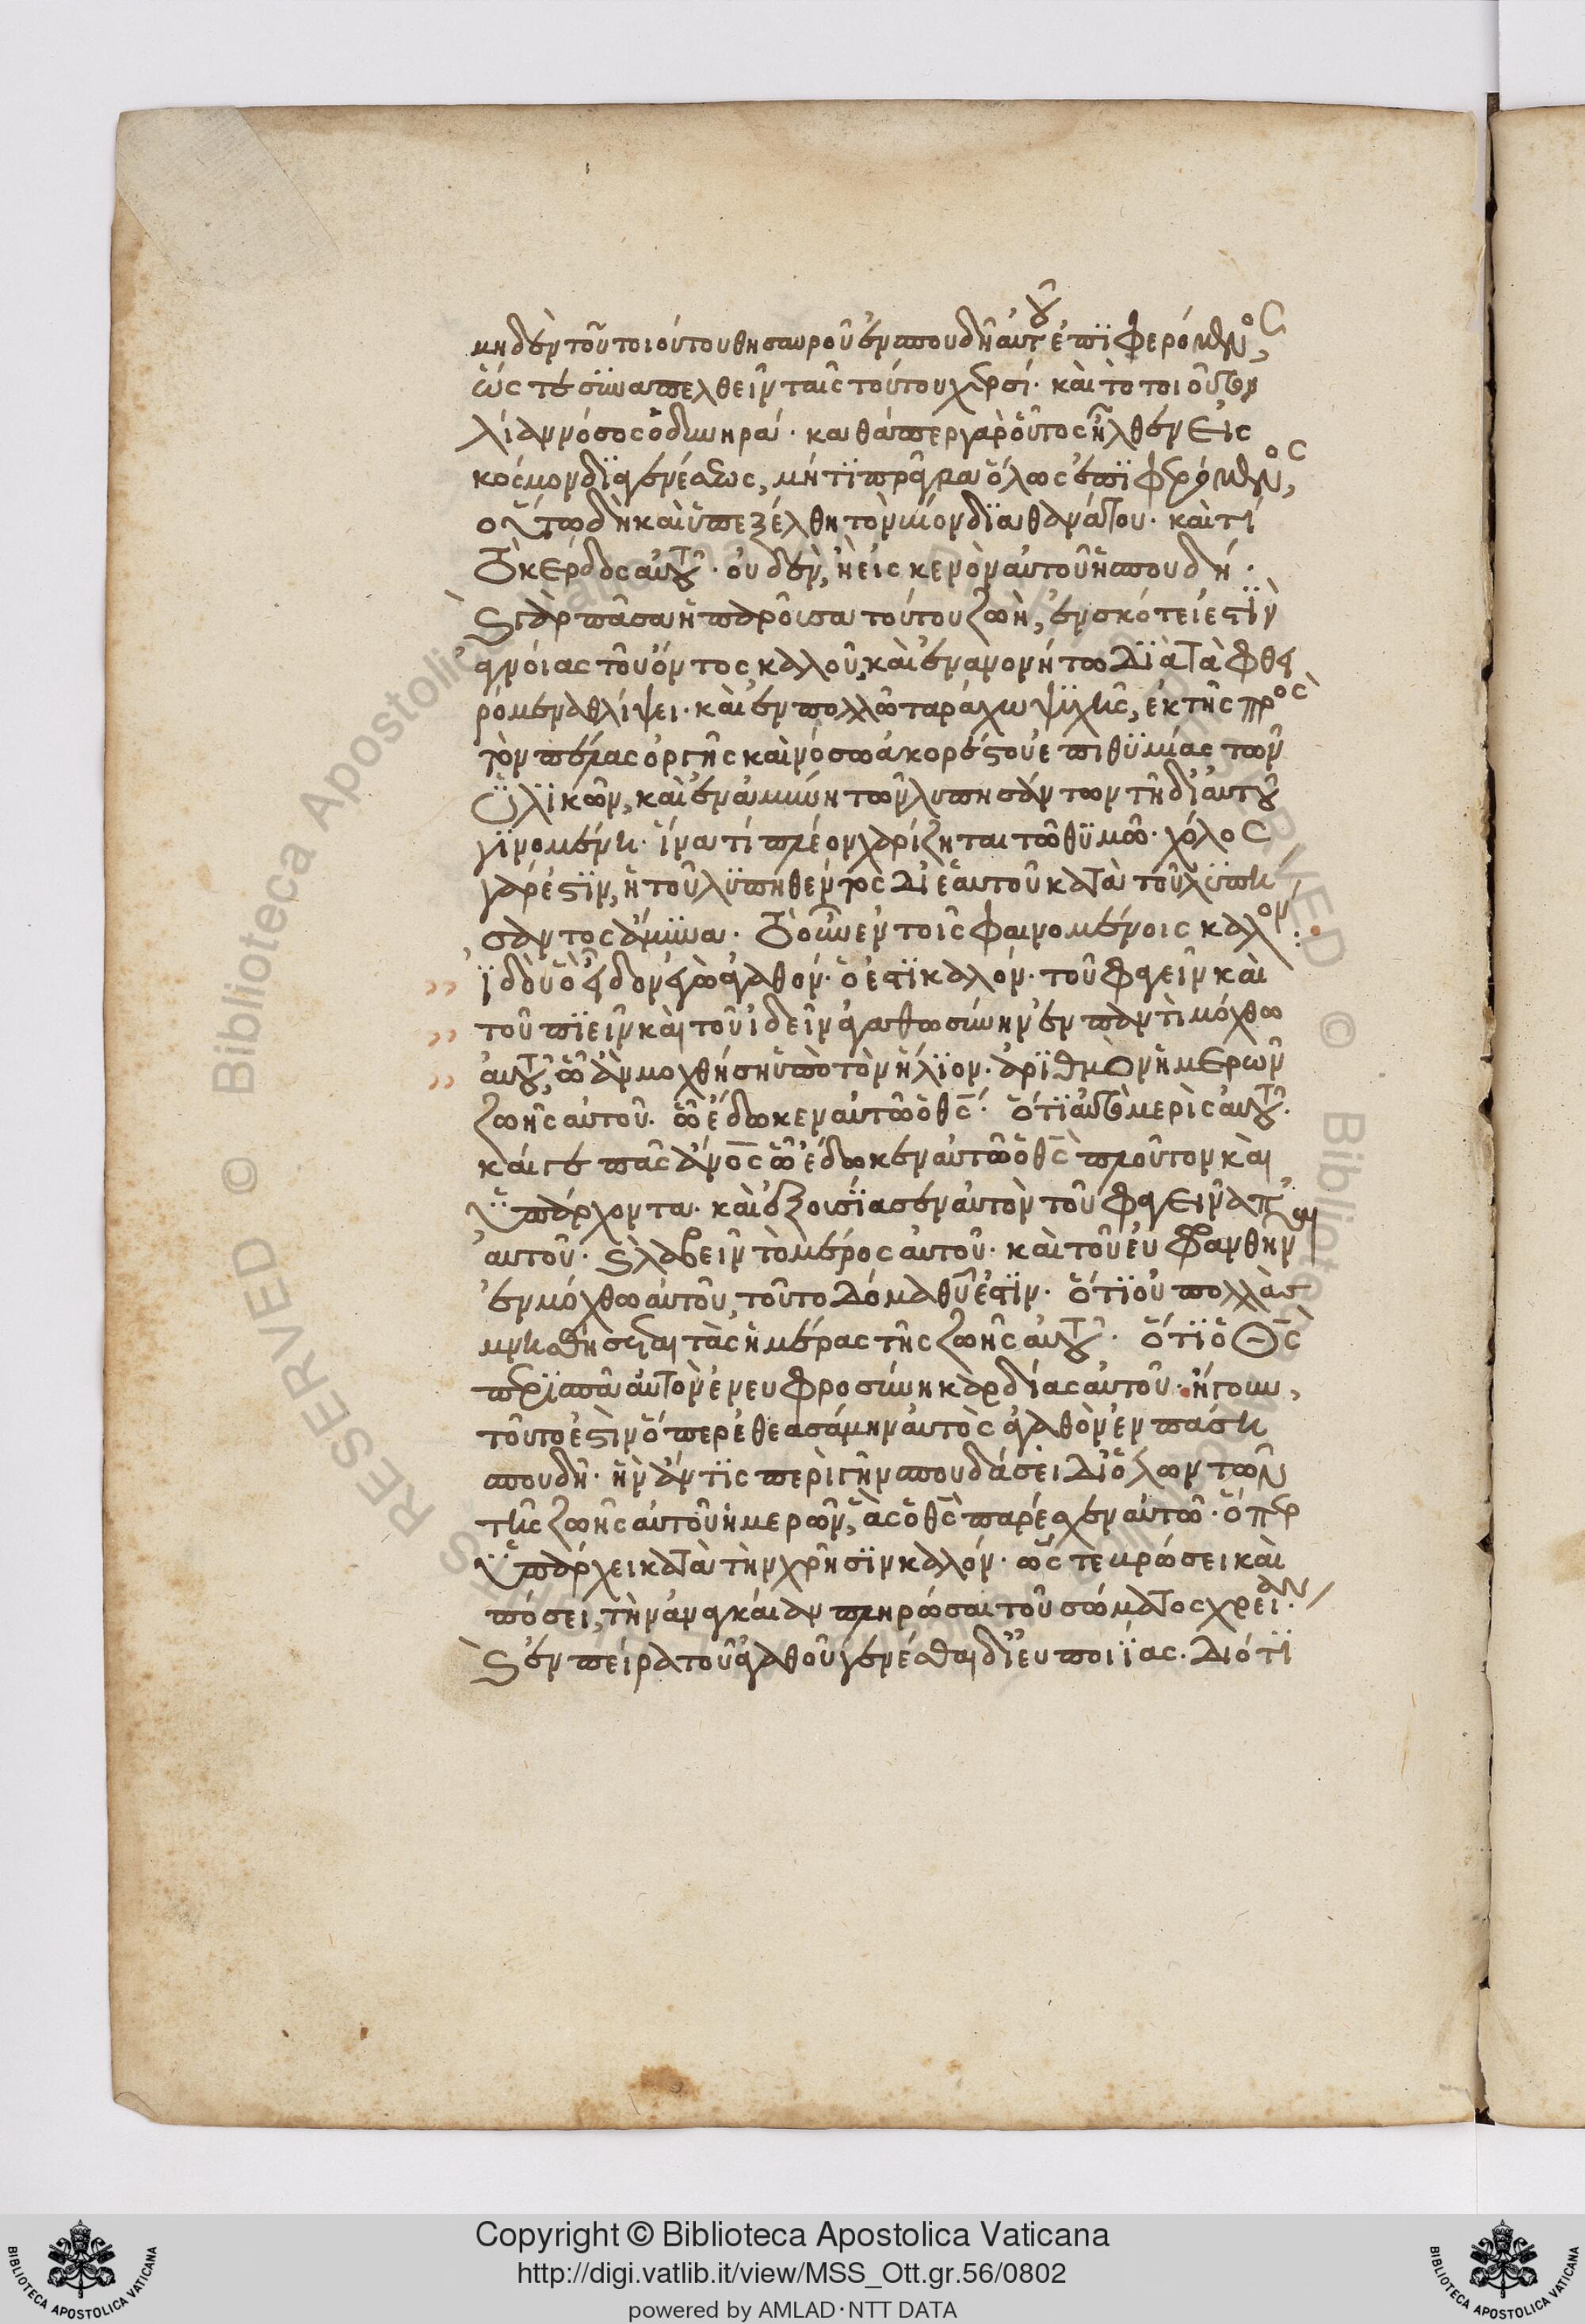 μηδὲν τοῦ τοιούτου θησαυροῦ ἐν σπουδῆ αὐτοῦ ἐπϊφερόμενος,
ὥς τε συναπελθεῖν ταῖς τούτου χερσί· καὶ τὸ τοιοῦτον
λίαν νόσος ὀδυνηρά· καθάπερ γὰρ οὗτος ἦλθεν εἰς
κόσμον δϊαγενέσεως, μήτϊ πρᾶγμα ὅλως ἐπϊφερόμενος,
οὕτω δὴ καὶ ὑπεξέλθη τὸν βίον δϊαθανάτου· καὶ τί
τὸ κέρδος αὐτοῦ· οὐδὲν, ἢ εἰς κενὸν αὐτοῦ ἡ σπουδή·
καὶ γὰρ πᾶσα ἡ παροῦσα τούτου ζωὴ, ἐν σκότει ἐστϊν
ἀγνοίας τοῦ ὄντος καλοῦ, καὶ ἐν ἀνονήτω δϊὰ τὰ φθει
ρόμενα θλίψει· καὶ ἐν πολλῶ ταράχω ψϋχῆς, ἐκ τῆς πρὸς
τὸν πέλας ὀργῆς καὶ νόσω ἀκορέστου ἐπιθϋμίας τῶν
ὑλϊκῶν, καὶ ἐν ἀμύνη τῶν λυπησάντων τῆ δι' αὐτοῦ
γϊνομένη· ἵνα τί πλέον χαρίζηται τῶ θϋμῶ· χόλος
γάρ ἐστϊν, ἡ τοῦ λϋπηθέντος δι' ἑαυτοῦ κατὰ τοῦ λϋπή
σαντος ἄμϋνα· τὸ οὖν ἐν τοῖς φαινομένοις καλόν:
ἰδοὺ ὃ εἶδον ἐγὼ ἀγαθόν· ὅ ἐστϊ καλόν· τοῦ φαγεῖν καὶ
τοῦ πϊεῖν καὶ τοῦ ἰδεῖν ἀγαθωσύνην ἐν παντὶ μόχθω
αὐτοῦ, ὧ ἂν μοχθήση ὑπὸ τὸν ἥλϊον· ἀρϊθμὸν ἡμερῶν
ζωῆς αὐτοῦ· ὧ ἔδωκεν αὐτῶ ὁ θς· ὅτϊ αὐτὸ μερὶς αὐτοῦ·
καί γε πᾶς ἄνος ὧ ἔδωκεν αὐτῶ ὁ θς πλοῦτον καὶ
ὑπάρχοντα· καὶ ἐξουσϊασεν αὐτὸν τοῦ φαγεῖν ἀπ'
αὐτοῦ· καὶ λαβεῖν τὸ μέρος αὐτοῦ· καὶ τοῦ εὐφρανθῆναι
ἐν μόχθω αὐτοῦ, τοῦτο δόμα θυ ἐστϊν· ὅτϊ οὐ πολλὰ
μνησθήσεται τὰς ἡμέρας τῆς ζωῆς αὐτοῦ· ὅτϊ ὁ θς
περϊσπᾶ αὐτὸν ἐν εὐφροσύνη καρδίας αὐτοῦ· ἤγουν,
τοῦτο ἐστὶν ὅπερ ἐθεασάμην αὐτὸς ἀγαθὸν ἐν πάση
σπουδῆ· ἣν ἄν τϊς περὶ γῆν σπουδάσει δι' ὅλων τῶν
τῆς ζωῆς αὐτοῦ ἡμερῶν, ἃς ὁ θς παρέσχεν αὐτῶ· ὅπερ
ὑπάρχει κατὰ τὴν χρῆσϊν καλόν· ὥς τε βρώσει καὶ
πόσει, τὴν ἀναγκαίαν πληρῶσαι τοῦ σώματος χρείαν·
καὶ ἐν πείρα τοῦ ἀγαθοῦ γενέσθαι δι' εὐποιΐας· διότϊ
Copyright © Biblioteca Apostolica Vaticana
http://digi.vatlib.it/view/MSS_Ott.gr.56/0802
powered by AMLAD·NTT DATA